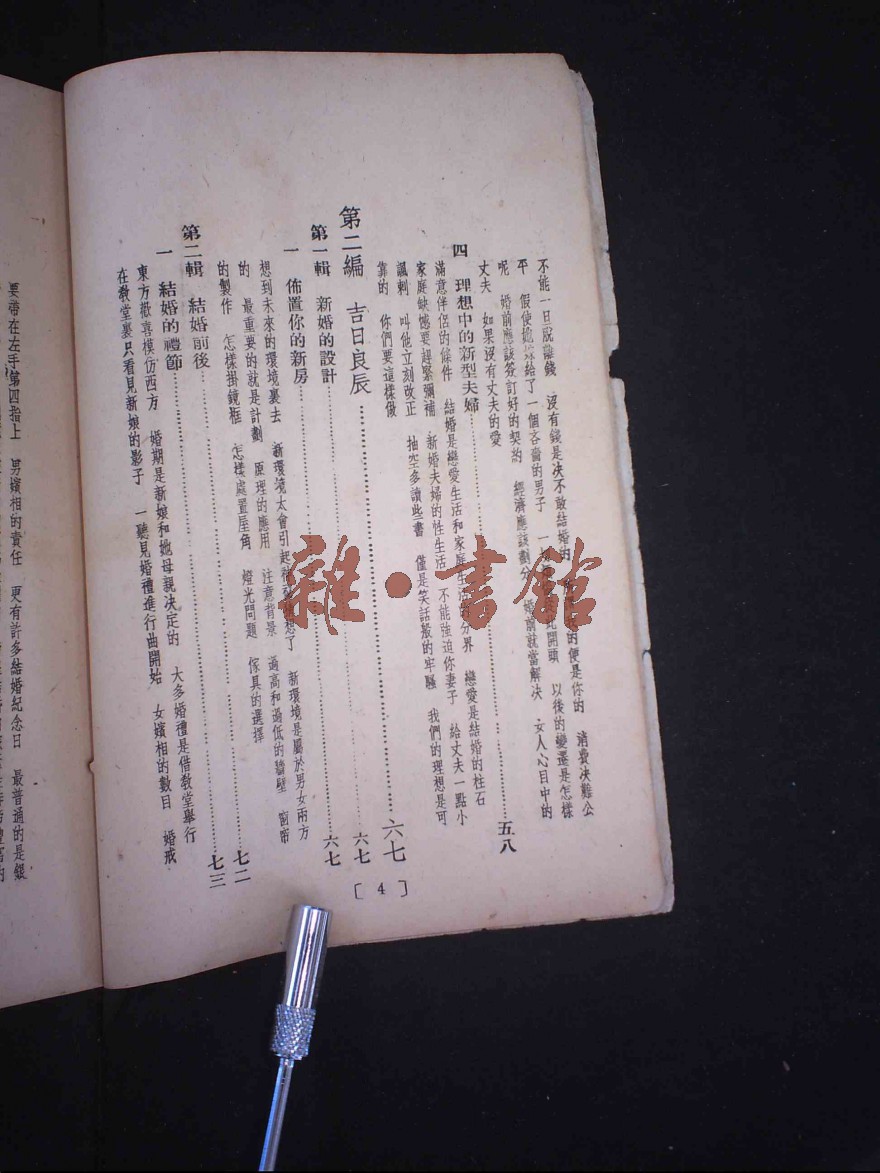 不能一日脫離錢　沒有錢是決不敢結婚的　的便是你的　消費決難公
平　假使她嫁給了一個吝嗇的男子　一切　此開頭　以後的變遷是怎樣
呢　婚前應該簽訂好的契約　經濟應該劃分　婚前就當解決　女人心目中的
丈夫　如果沒有丈夫的愛
四　理想中的新型夫婦……………………五八
滿意伴侶的條件　結婚是戀愛生活和家庭生活的分界　戀愛是結婚的柱石
家庭缺憾要趕緊彌補　新婚夫婦的性生活　不能強迫你妻子　給丈夫一點小
諷刺　叫他立刻改正　抽空多讀些書　僅是笑話般的牢騷　我們的理想是可
靠的　你們要這樣做
第二編　吉日良辰……………………六七
第一輯　新婚的設計……………………六七
一　佈置你的新房……………………六七
想到未來的環境裏去　新環境太會引起　想了　新環境是屬於男女兩方
的　最重要的就是計劃　原理的應用　注意背景　過高和過低的牆壁　窗帘
的製作　怎樣掛鏡框　怎樣處置屋角　燈光問題　傢具的選擇
第二輯　結婚前後……………………七二
一　結婚的禮節……………………七三
東方歡喜模仿西方　婚期是新娘和她母親決定的　大多婚禮是借教堂舉行
在教堂裏只看見新娘的影子　一聽見婚禮進行曲開始　女嬪相的數目　婚戒
[4]
要帶在左手第四指上　男嬪相的責任　更有許多結婚紀念日　最普通的是銀
雜·書館